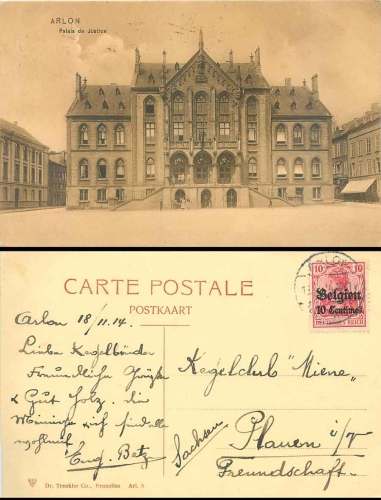 ARLON
Palais de Justice
CARTE POSTALE
POSTKAART
10 10
Belgien
10 Centimes
DEUTSCHES REICH
Arlon 18/11.14.
Liebe Kegelbrüder
Freundliche Grüsse
& Gut Holz. die
sich
wohlauf
Eug. Betz
Kegelclub "Miene"
Sachsen
Plauen i/V
Freundschaft
Dr. Trenkler Co., Bruxelles Arl. 5